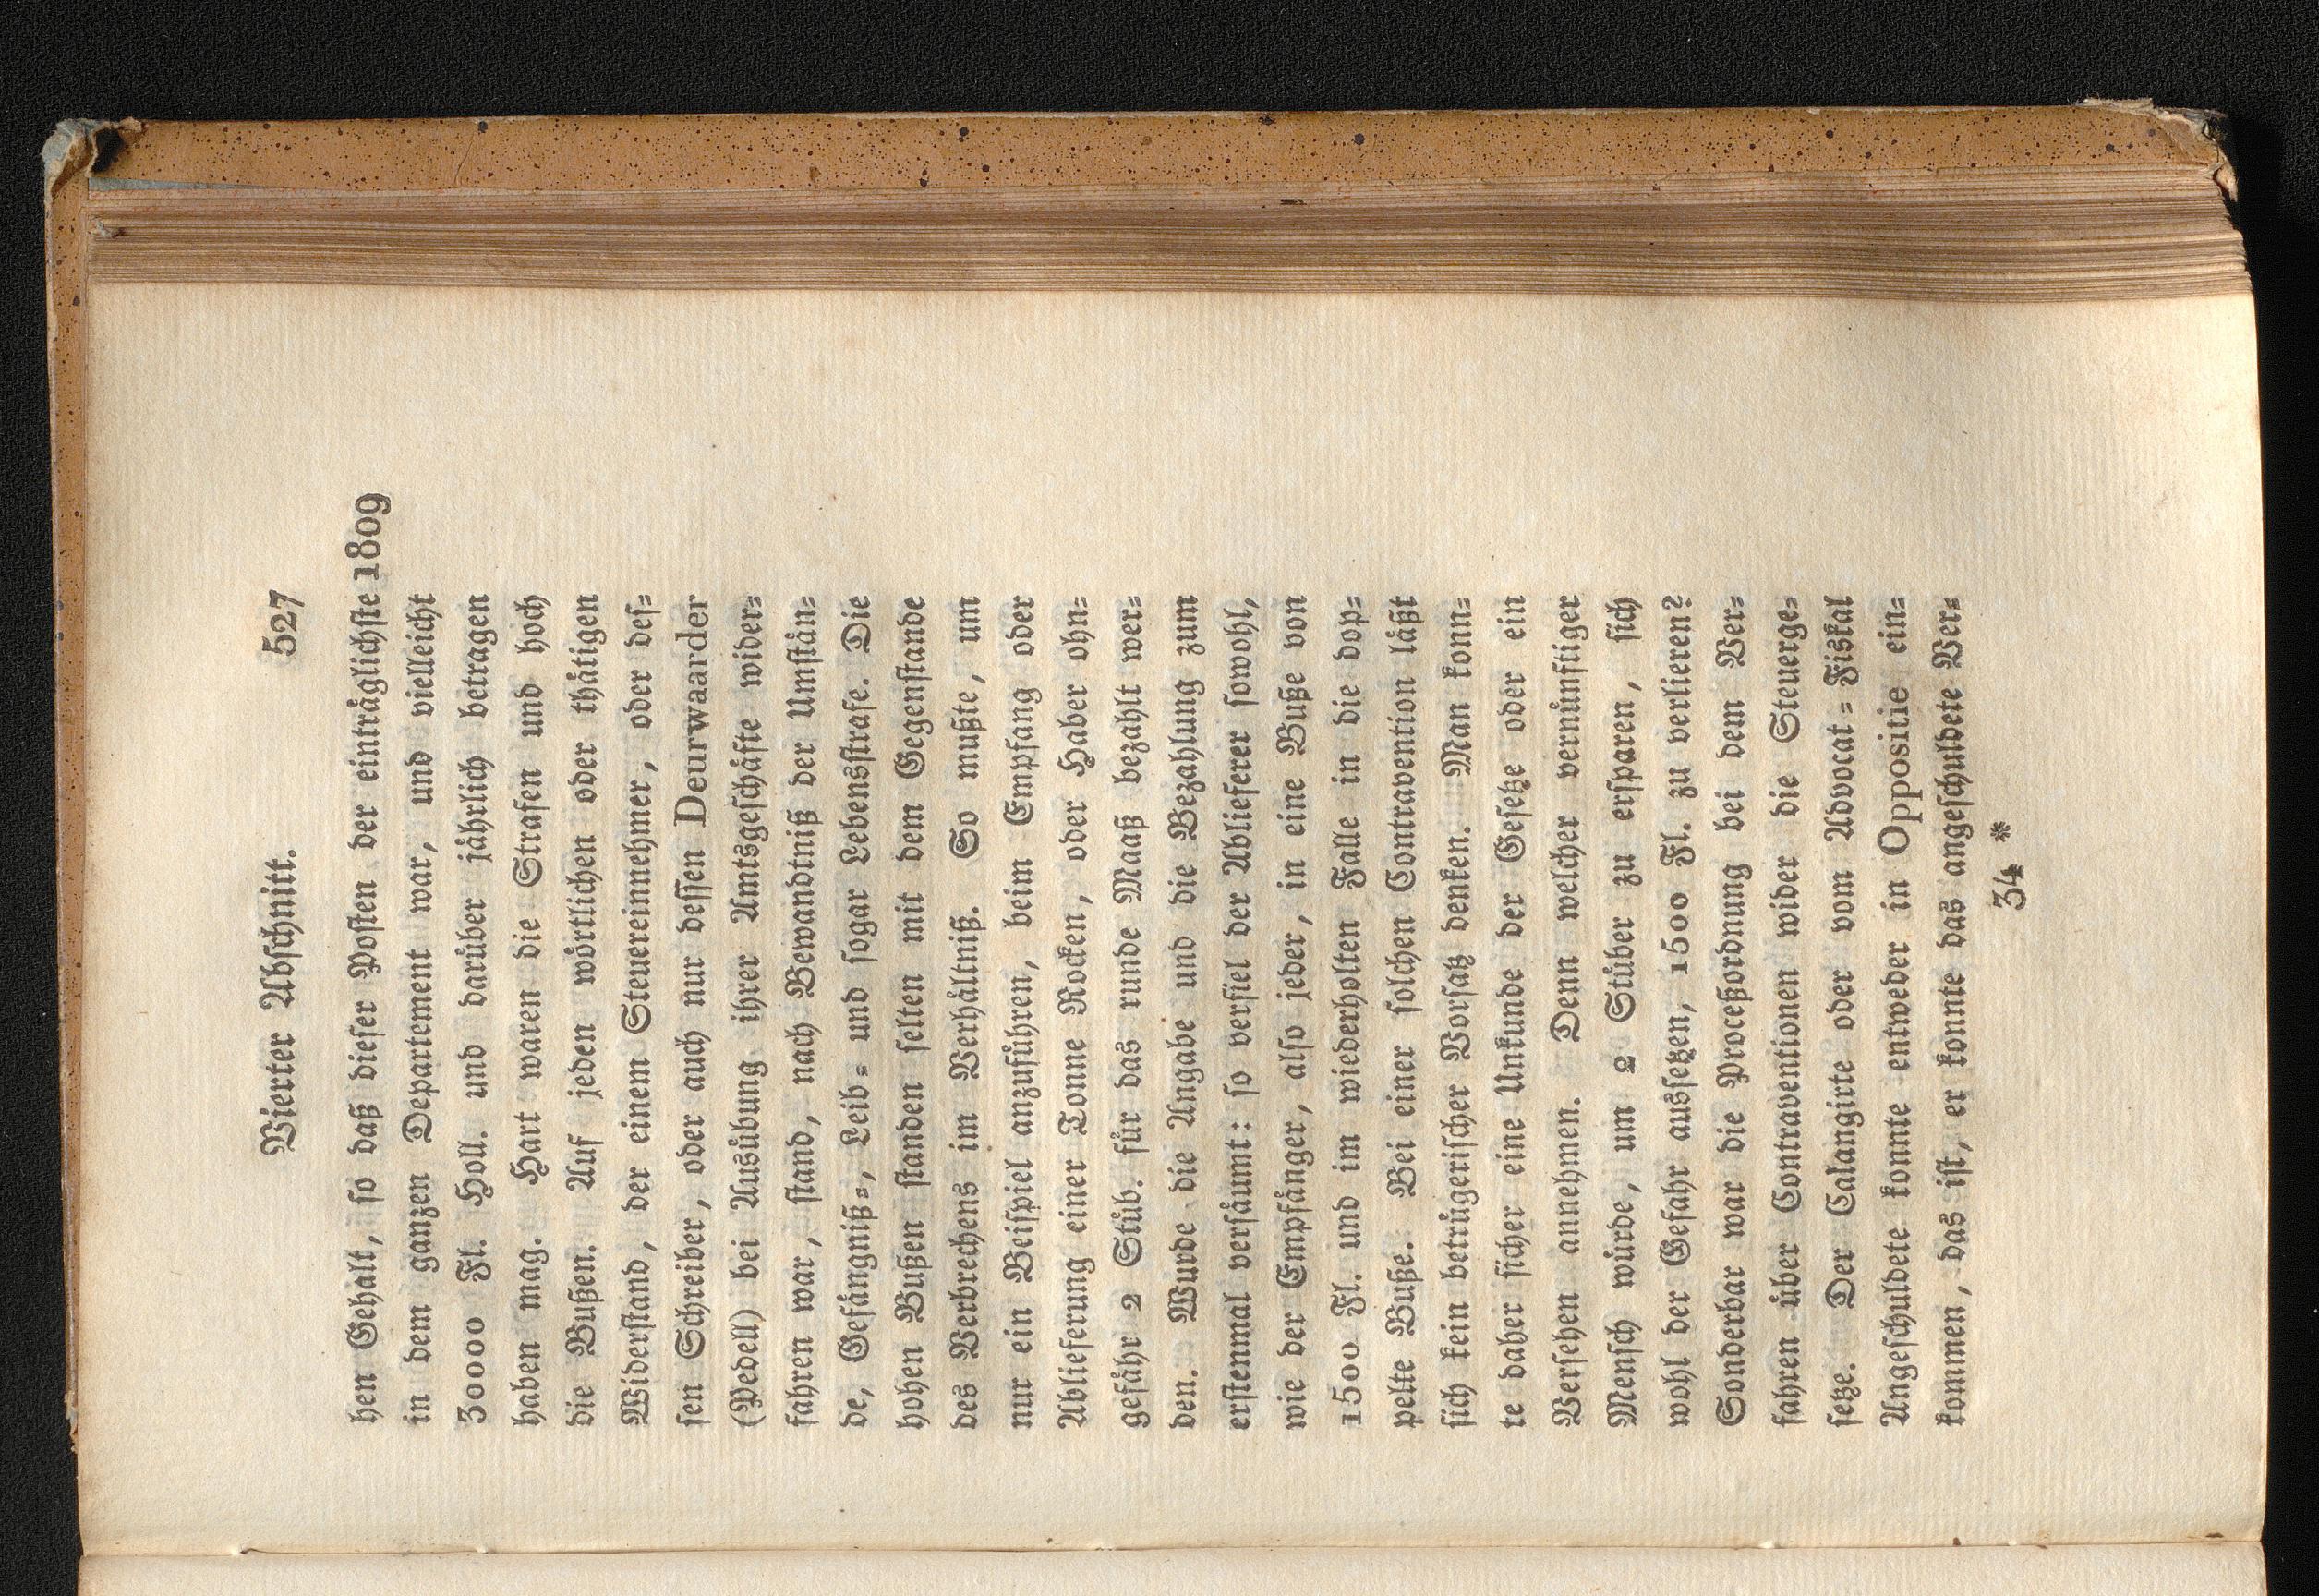 Vierter Abschnitt. 527
hen Gehalt, so daß dieser Posten der einträglichste 1809
in dem ganzen Departement war, und vielleicht
30000 Fl. Holl. und darüber jährlich betragen
haben mag. Hart waren die Strafen und hoch
die Bußen. Auf jeden wörtlichen oder thätigen
Widerstand, der einem Steuereinnehmer, oder des=
sen Schreiber, oder auch nur dessen Deurwaarder
(Pedell) bei Ausübung ihrer Amtsgeschäfte wider=
fahren war, stand, nach Bewandtniß der Umstän=
de, Gefängniß=, Leib= und sogar Lebensstrafe. Die
hohen Bußen standen selten mit dem Gegenstande
des Verbrechens im Verhältniß. So mußte, um
nur ein Beispiel anzuführen, beim Empfang oder
Ablieferung einer Tonne Rocken, oder Haber ohn=
gefähr 2 Stüb. für das runde Maaß bezahlt wer=
den. Wurde die Angabe und die Bezahlung zum
erstenmal versäumt: so verfiel der Ablieferer sowohl,
wie der Empfänger, also jeder, in eine Buße von
1500 Fl. und im wiederholten Falle in die dop=
pelte Buße. Bei einer solchen Contravention läßt
sich kein betrügerischer Vorsatz denken. Man konn=
te daher sicher eine Unkunde der Gesetze oder ein
Versehen annehmen. Denn welcher vernünftiger
Mensch würde, um 2 Stüber zu ersparen, sich
wohl der Gefahr aussetzen, 1500 Fl. zu verlieren?
Sonderbar war die Proceßordnung bei dem Ver=
fahren über Contraventionen wider die Steuerge=
setze. Der Calangirte oder vom Advocat=Fiskal
Angeschuldete konnte entweder in Oppositie ein=
kommen, das ist, er konnte das angeschuldete Ver=
34 *